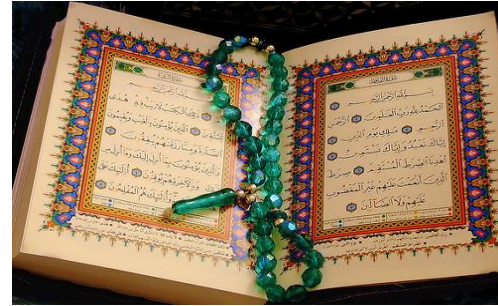 سورة الفاتحة
بسم الله الرحمن الرحيم
الحمد لله رب العلمين الرحمن
الرحيم ملك يوم الدين
إياك نعبد وإياك نستعين
اهدنا الصراط المستقيم صراط
الذين أنعمت عليهم غير المغضوب
عليهم ولا الضالين
سورة البقرة
بسم الله الرحمن الرحيم
ذلك الكتب لا ريب فيه هدى
للمتقين الذين يؤمنون بالغيب ويقيمون
الصلوة ومما رزقنهم ينفقون
والذين يؤمنون بما أنزل إليك وما أنزل من
وبالآخرة هم يوقنون أولئك على
ربهم وأولئك هم المفلحون